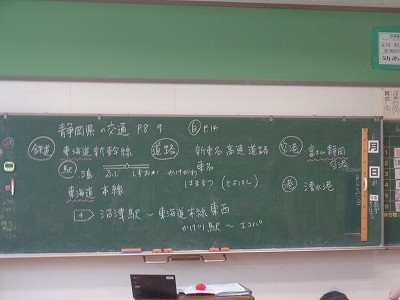 静岡県の交通 P.8 9 自 P.14
鉄道 東海道新幹線
駅 三島 ふじ しずおか かけがわ
はままつ (とよはし)
東海道本線
道路 新東名高速道路
東名
空港 富士山静岡
空港
港 清水港
4 沼津駅～東海道本線 東西
かけ川駅～エコパ
月
日